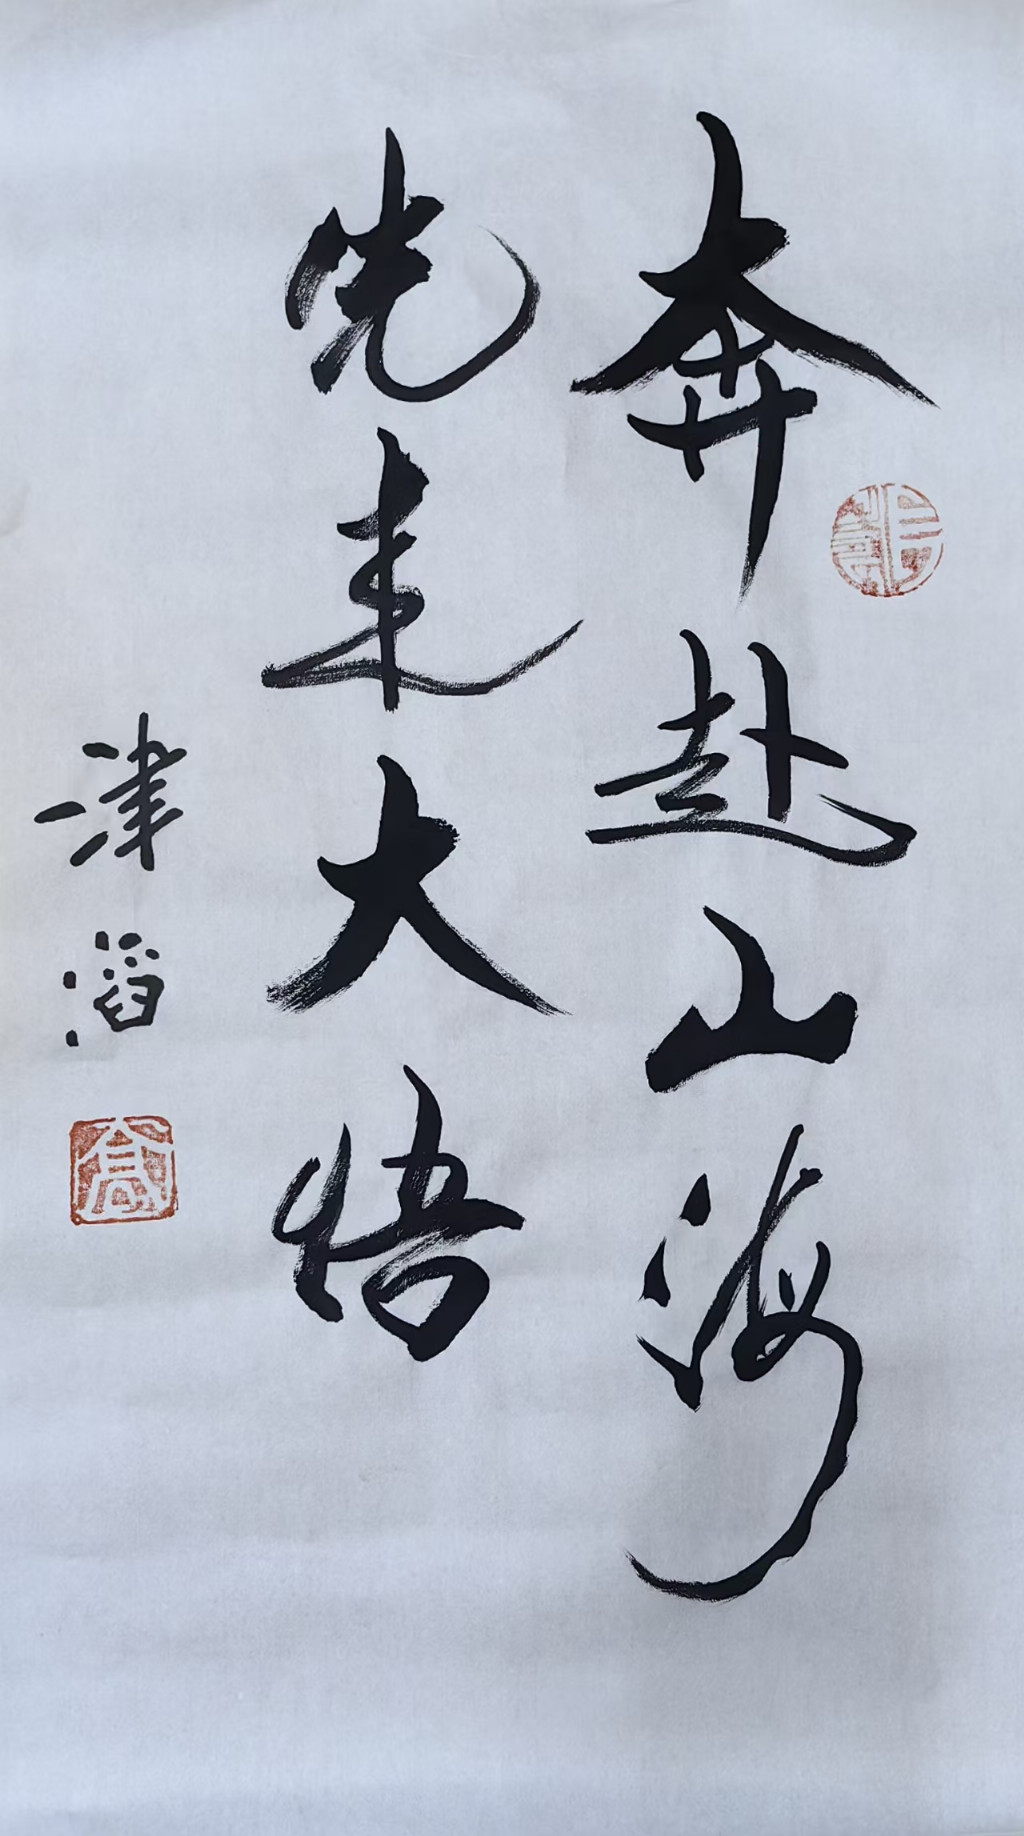 奔赴山海
先来大悟
津滔